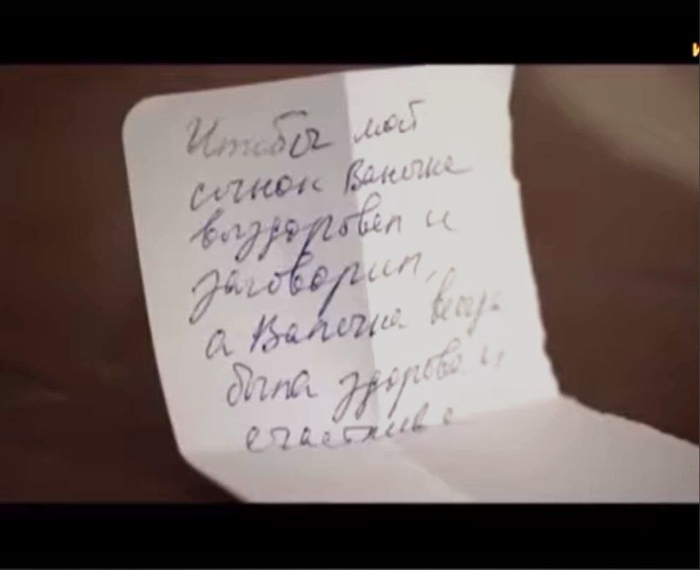 Чтобы мой
сынок Ванечка
выздоровел и
заговорил,
а Валечка всегда
была здорова и
счастлива